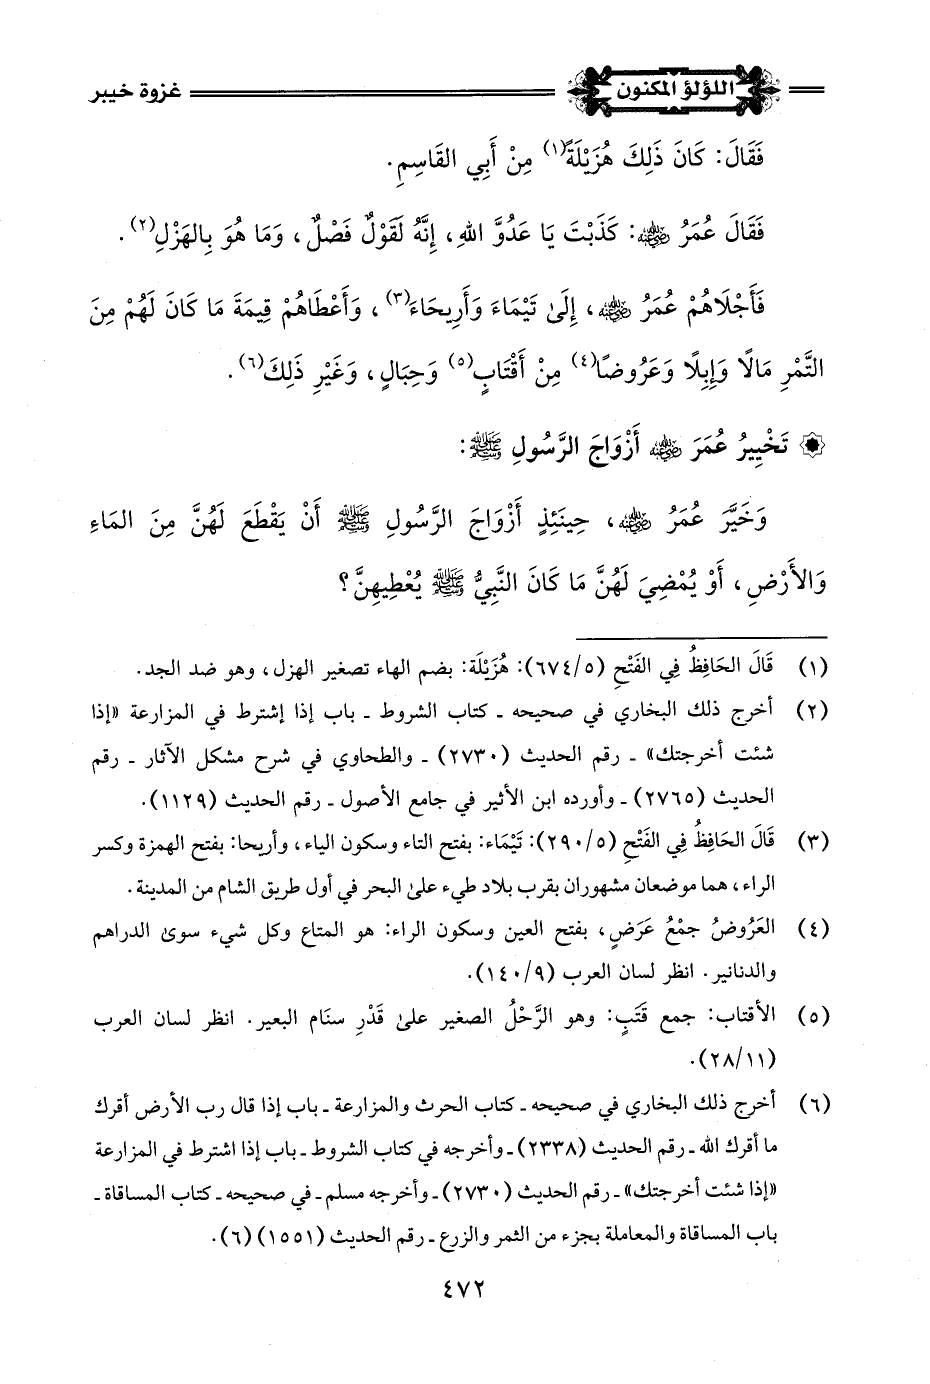 اللؤلؤ المكنون
غزوة خيبر
فَقَالَ: كَانَ ذَلِكَ هُزَيْلَةً(١) مِنْ أَبِي القَاسِمِ.
فَقَالَ عُمَرُ ﵁: كَذَبْتَ يَا عَدُوَّ اللهِ، إِنَّهُ لَقَوْلٌ فَصْلٌ، وَمَا هُوَ بِالهَزْلِ(٢).
فَأَجْلَاهُمْ عُمَرُ ﵁، إِلَىٰ تَيْمَاءَ وَأَرِيحَاءَ(٣)، وَأَعْطَاهُمْ قِيمَةَ مَا كَانَ لَهُمْ مِنَ
الثَّمْرِ مَالًا وَإِبِلًا وَعَرُوضًا(٤) مِنْ أَقْتَابٍ(٥) وَحِبَالٍ، وَغَيْرِ ذَلِكَ(٦).
۞ تَخْيِيرُ عُمَرَ ﵁ أَزْوَاجَ الرَّسُولِ ﷺ:
وَخَيَّرَ عُمَرُ ﵁، حِينَئِذٍ أَزْوَاجَ الرَّسُولِ ﷺ أَنْ يَقْطَعَ لَهُنَّ مِنَ المَاءِ
وَالأَرْضِ، أَوْ يُمْضِيَ لَهُنَّ مَا كَانَ النَّبِيُّ ﷺ يُعْطِيهِنَّ؟
(١) قَالَ الحَافِظُ فِي الفَتْحِ (٦٧٤/٥): هُزَيْلَة: بضم الهاء تصغير الهزل، وهو ضد الجد.
(٢) أخرج ذلك البخاري في صحيحه ـ كتاب الشروط ـ باب إذا إشترط في المزارعة «إذا
شئت أخرجتك» ـ رقم الحديث (٢٧٣٠) ـ والطحاوي في شرح مشكل الآثار ـ رقم
الحديث (٢٧٦٥) ـ وأورده ابن الأثير في جامع الأصول ـ رقم الحديث (١١٢٩).
(٣) قَالَ الحَافِظُ فِي الفَتْحِ (٢٩٠/٥): تَيْمَاء: بفتح التاء وسكون الياء، وأريحا: بفتح الهمزة وكسر
الراء، هما موضعان مشهوران بقرب بلاد طيء علىٰ البحر في أول طريق الشام من المدينة.
(٤) العَرُوضُ جمْعُ عَرَضٍ، بفتح العين وسكون الراء: هو المتاع وكل شيء سوىٰ الدراهم
والدنانير. انظر لسان العرب (١٤٠/٩).
(٥) الأقتاب: جمع قَتَبٍ: وهو الرَّحْلُ الصغير علىٰ قَدْرِ سنَام البعير. انظر لسان العرب
(٢٨/١١).
(٦) أخرج ذلك البخاري في صحيحه ـ كتاب الحرث والمزارعة ـ باب إذا قال رب الأرض أقرك
ما أقرك الله ـ رقم الحديث (٢٣٣٨) ـ وأخرجه في كتاب الشروط ـ باب إذا اشترط في المزارعة
«إذا شئت أخرجتك» ـ رقم الحديث (٢٧٣٠) ـ وأخرجه مسلم ـ في صحيحه ـ كتاب المساقاة ـ
باب المساقاة والمعاملة بجزء من الثمر والزرع ـ رقم الحديث (١٥٥١) (٦).
٤٧٢